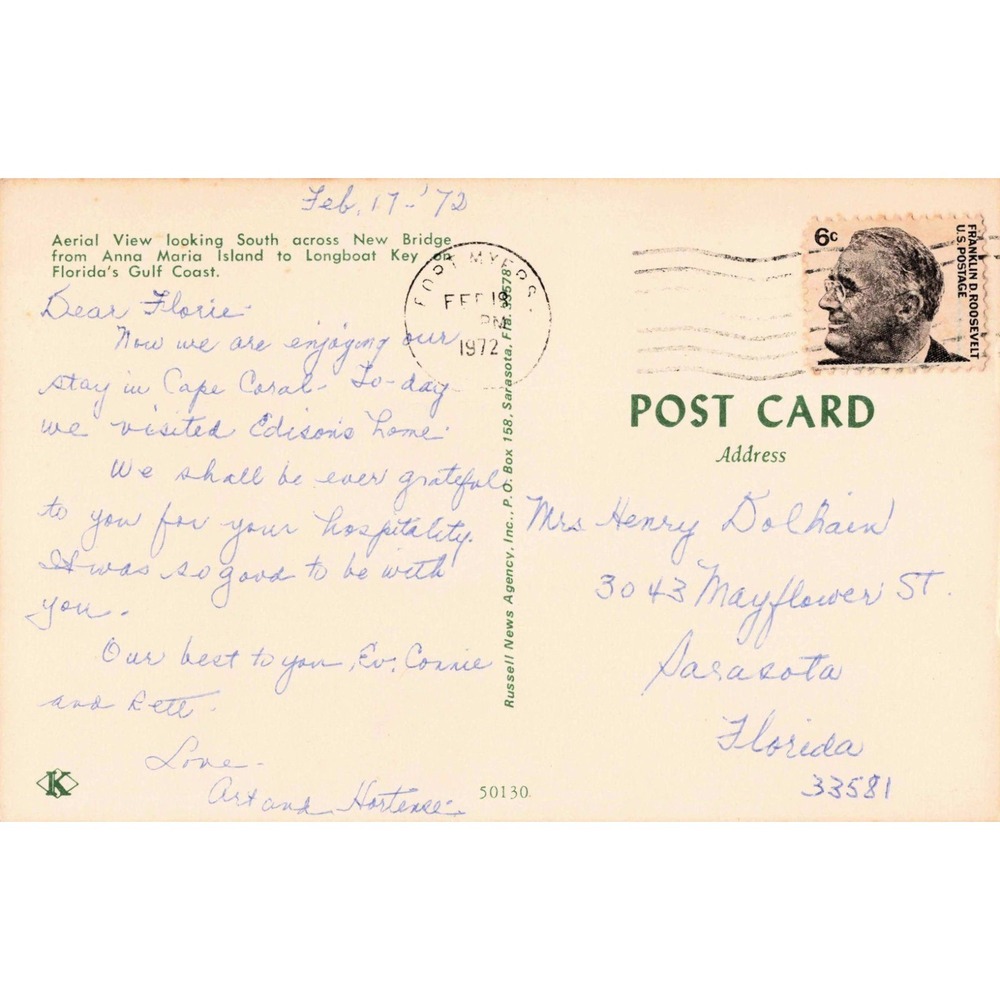 Feb. 17-'72
Aerial View looking South across New Bridge
from Anna Maria Island to Longboat Key on
Florida's Gulf Coast.
Dear Florie
Now we are enjoying our
stay in Cape Coral - To-day
we visited Edison's home.
We shall be ever grateful
to you for your hospitality.
It was so good to be with
you.
Our best to you, Ev, Connie
and
Love -
Art and Hortense
K
50130
Russell News Agency, Inc., P.O. Box 158, Sarasota, Fla. 33578
FORT MYERS
FEB 18
PM
1972
6c
FRANKLIN D. ROOSEVELT
U.S. POSTAGE
POST CARD
Address
Mrs Henry Dolhain
3043 Mayflower St.
Sarasota
Florida
33581